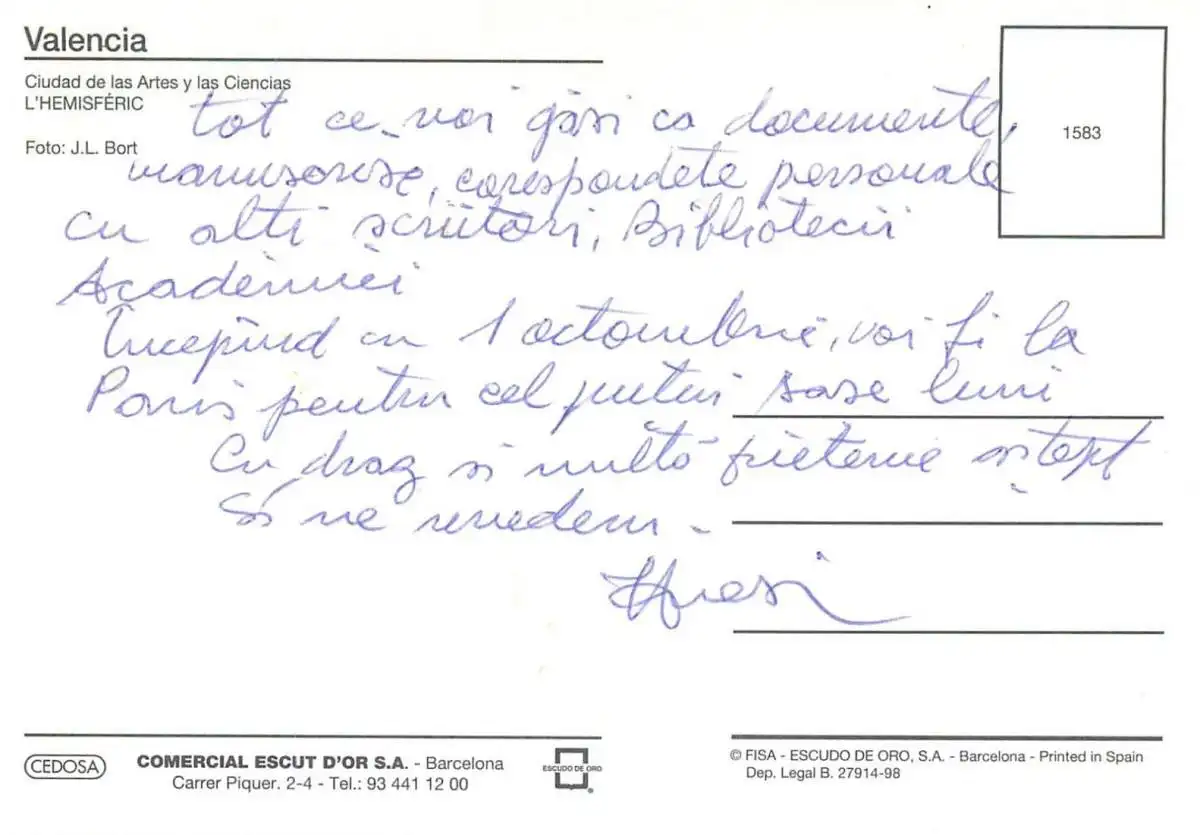 Valencia
Ciudad de las Artes y las Ciencias
L'HEMISFÉRIC
Foto: J.L. Bort
1583
tot ce voi găsi ca documente,
manuscrise, corespondete personale
cu alți scriitori, Bibliotecii
Academiei
Începînd cu 1 octombrie, voi fi la
Paris pentru cel puțin șase luni
Cu drag si multă prietenie aștept
Să ne revedem -
CEDOSA
COMERCIAL ESCUT D'OR S.A. - Barcelona
Carrer Piquer. 2-4 - Tel.: 93 441 12 00
ESCUDO DE ORO
© FISA - ESCUDO DE ORO, S.A. - Barcelona - Printed in Spain
Dep. Legal B. 27914-98